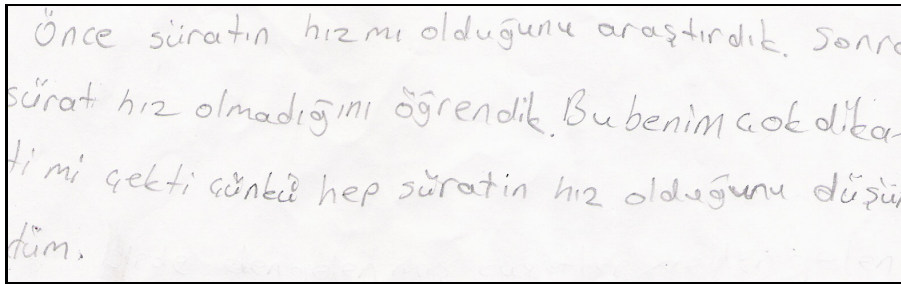 Önce süratin hızmı olduğunu araştırdık. Sonra
sürat hız olmadığını öğrendik. Bu benim çok dika-
ti mi çekti çünkü hep süratin hız olduğunu düşün
düm.